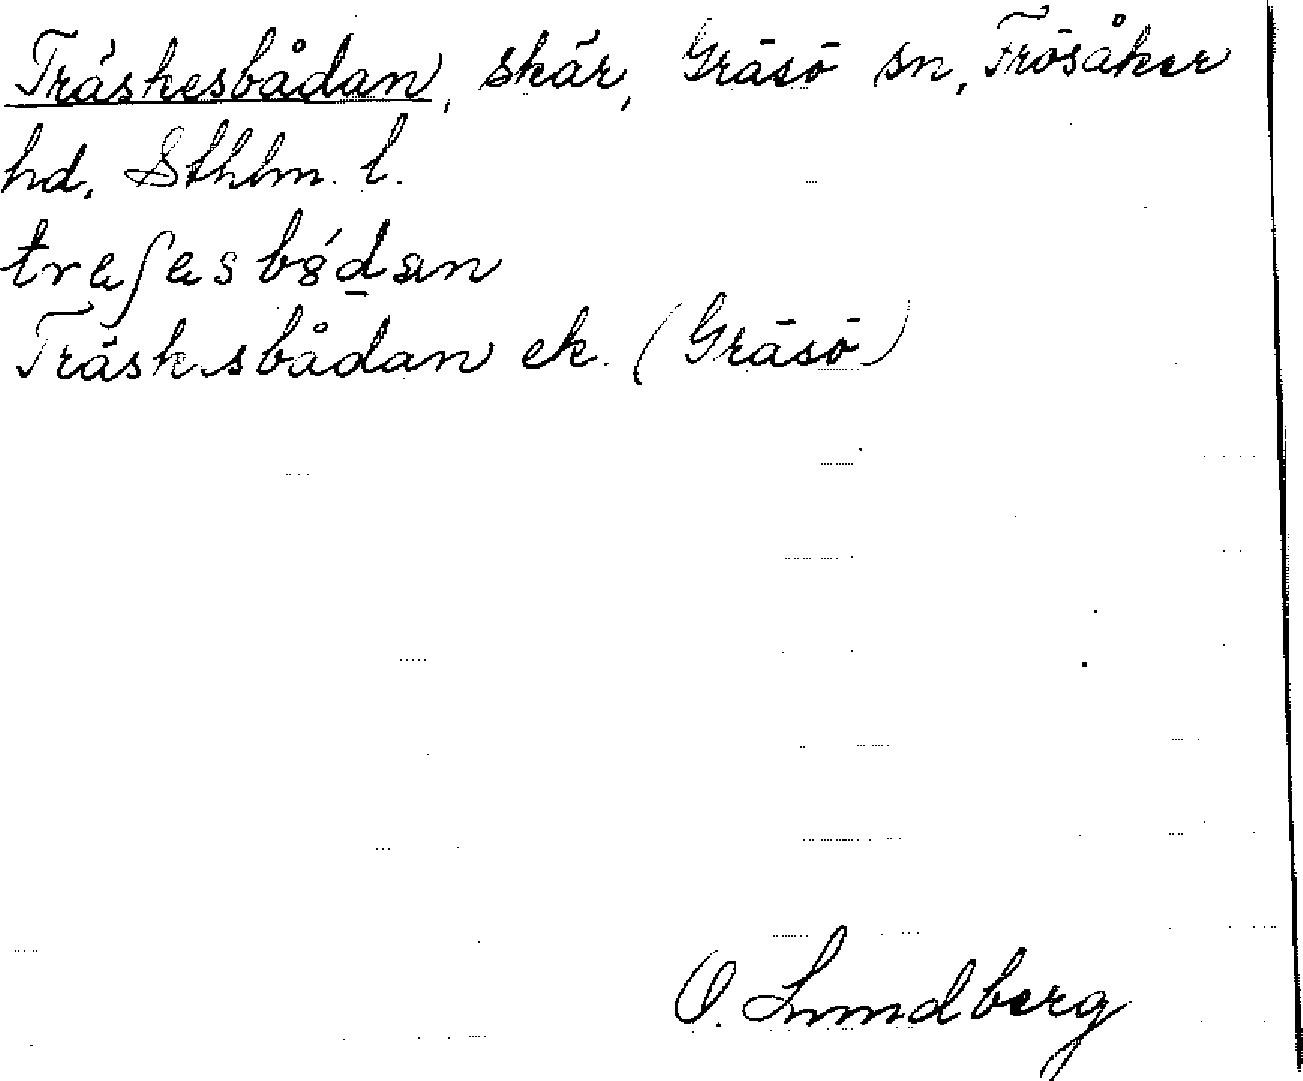 Träskesbådan, skär, Gräsö sn, Frösåker
hd. Sthlm. l.
träʃesbódan
Träsksbådan ek. (Gräsö)
O. Lundberg